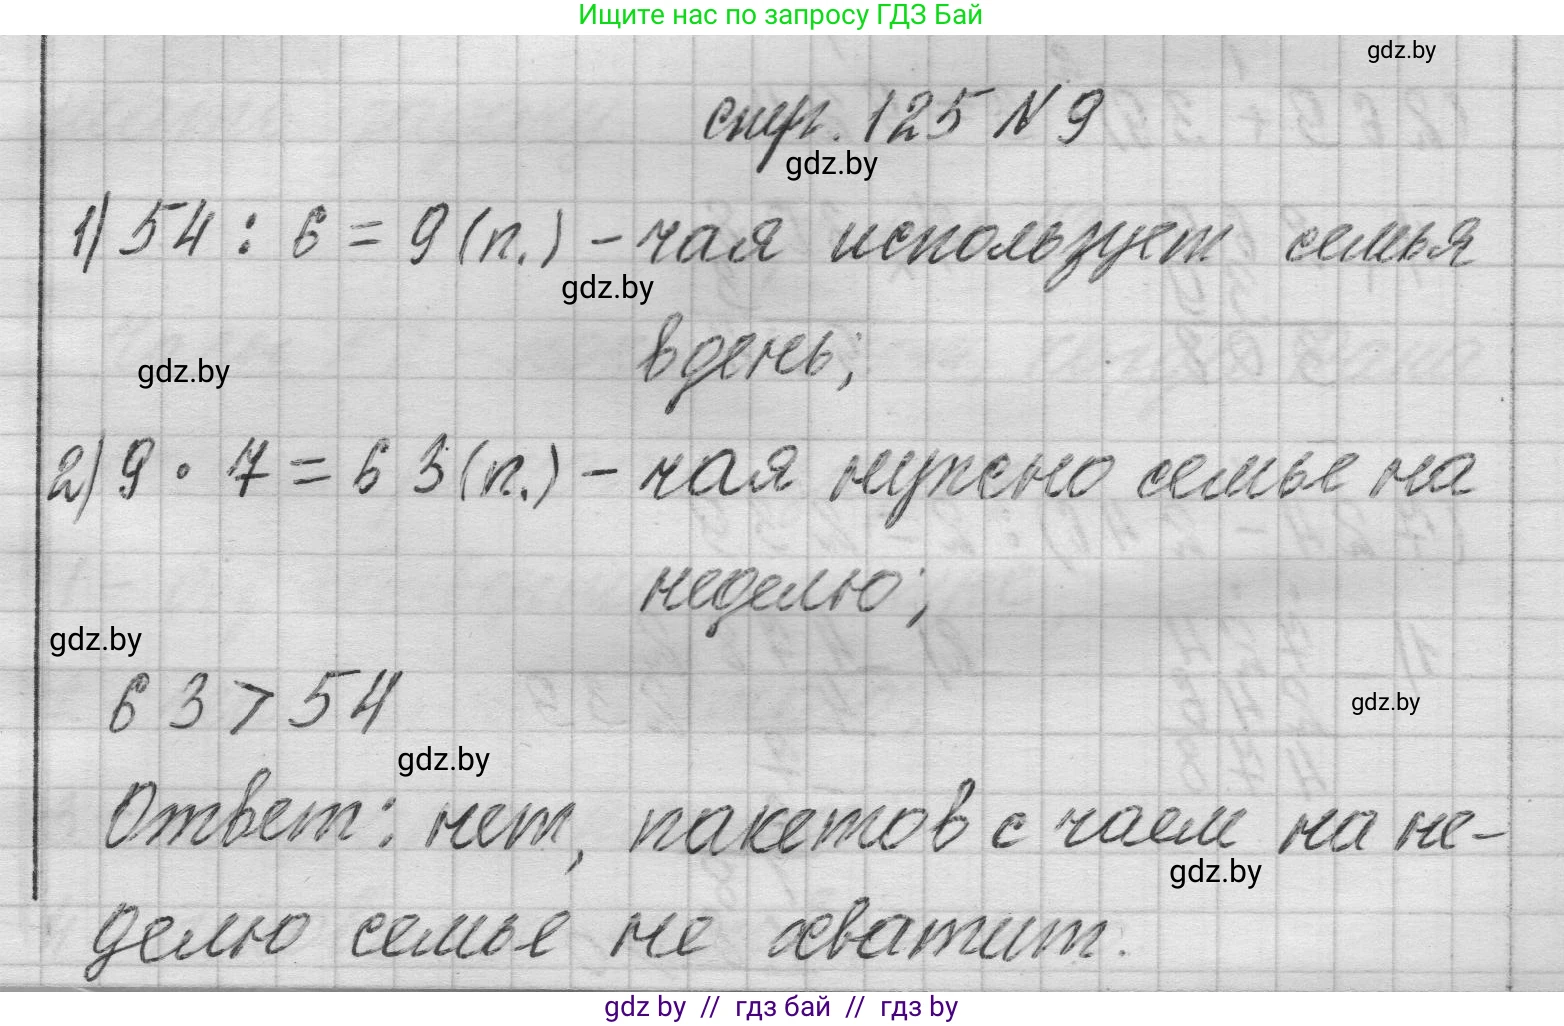 Ищите нас по запросу ГДЗ Бай
gdz.by
стр. 125 N 9
gdz.by
1) 54 : 6 = 9 (п.) - чая использует семья
gdz.by
в день;
gdz.by
2) 9 · 7 = 63 (п.) - чая нужно семье на
неделю;
gdz.by
63 > 54
gdz.by
gdz.by
Ответ: нет, пакетов с чаем на не-
gdz.by
делю семье не хватит.
gdz by // гдз бай // гдз by